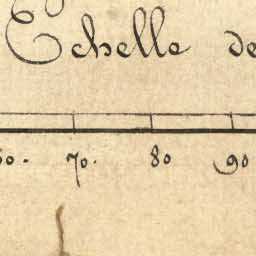 Echelle de
70. 80 90